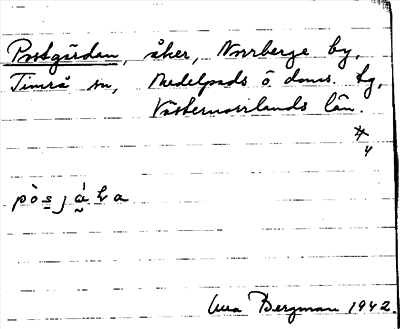 Postgården, åker, Norrberge by,
Timrå sn, Medelpads ö. doms. tg,
Västernorrlands län.
4
Bergman 1942.